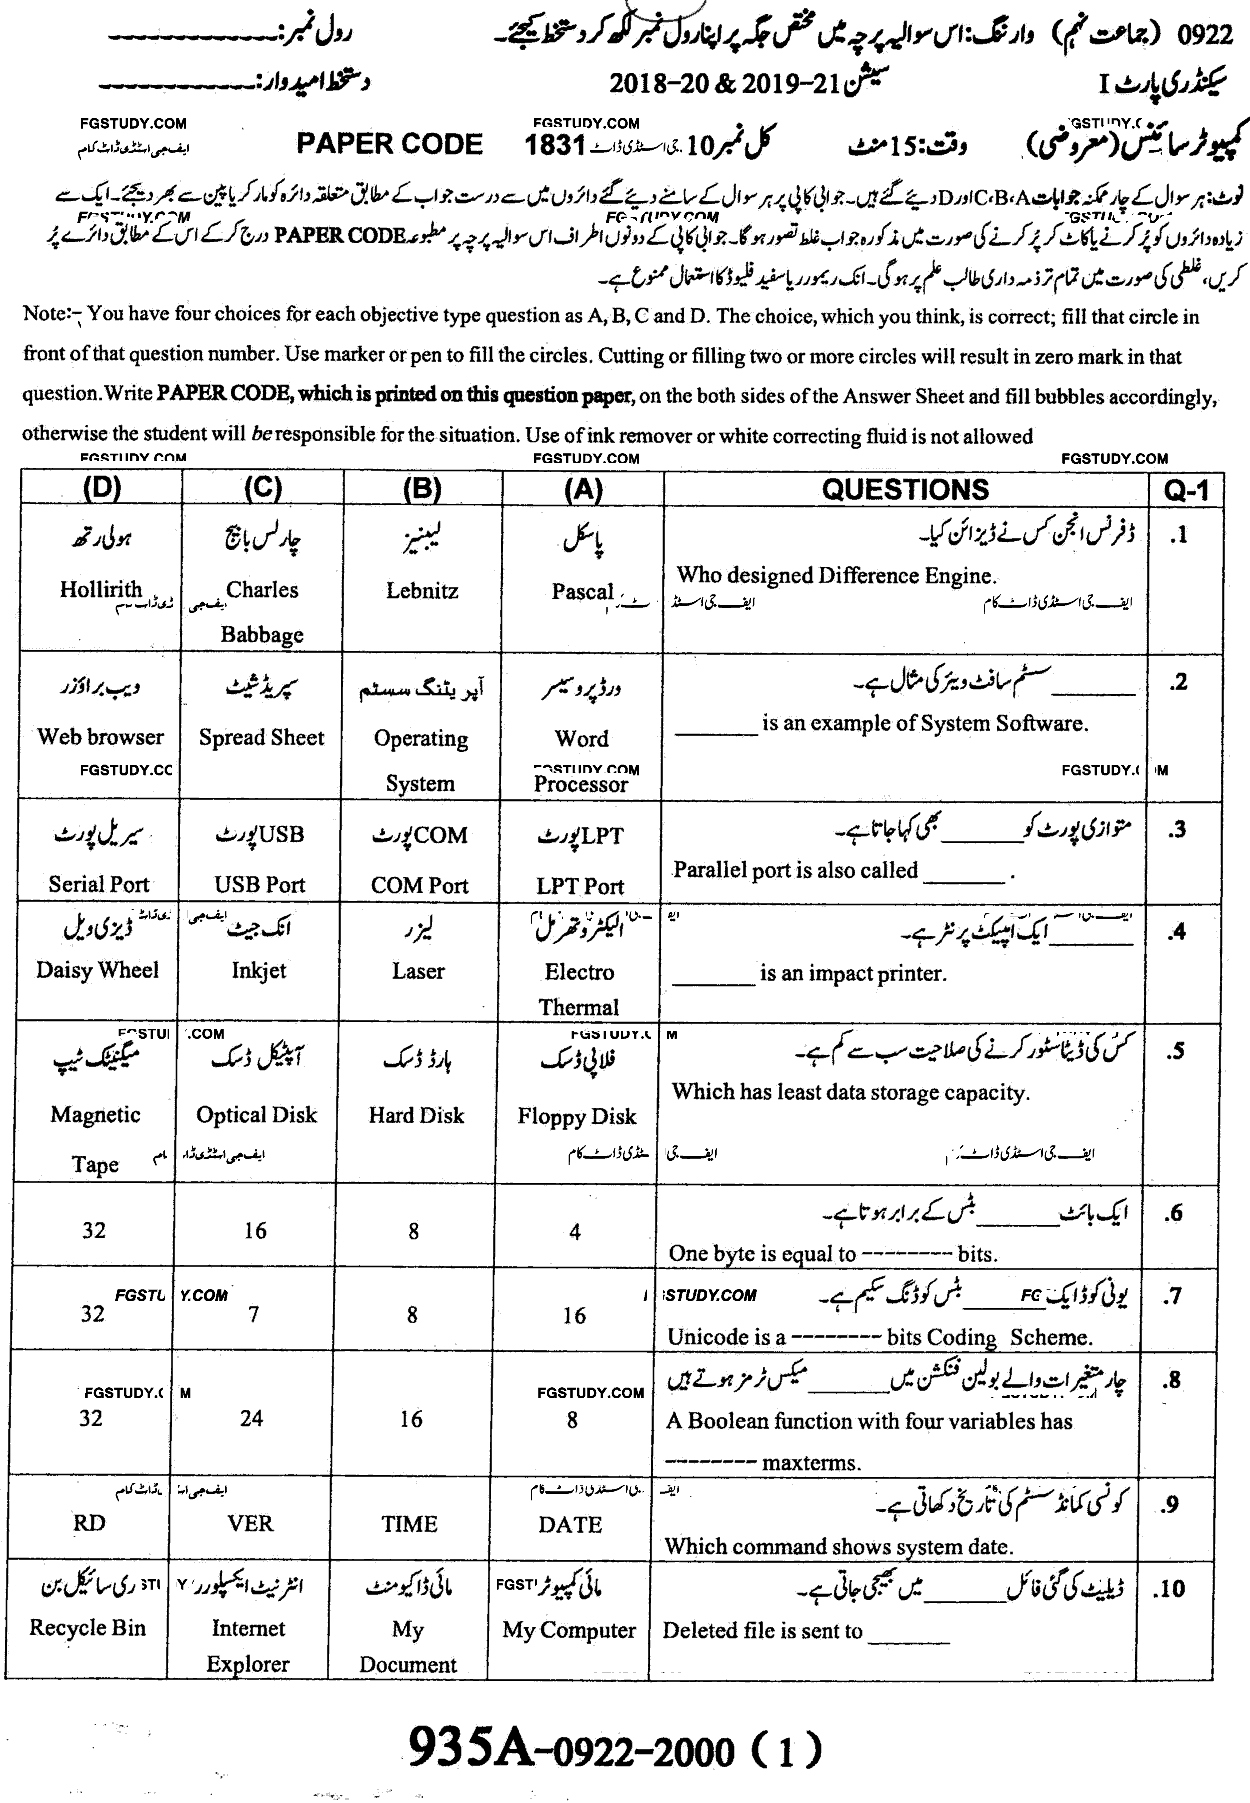 0922 (جماعت نہم) وارننگ: اس سوالیہ پرچہ میں مختص جگہ پر اپنا رول نمبر لکھ کر دستخط کیجئے۔ رول نمبر: ـــــــــــــ
سیکنڈری پارٹ I سیشن 21-2019 & 20-2018 دستخط امیدوار: ـــــــــــــ
FGSTUDY.COM FGSTUDY.COM
کمپیوٹر سائنس (معروضی) وقت: 15 منٹ کل نمبر 10 1831 PAPER CODE
نوٹ: ہر سوال کے چار ممکنہ جوابات A، B، C اور D دیئے گئے ہیں۔ جوابی کاپی پر ہر سوال کے سامنے دیئے گئے دائروں میں سے درست جواب کے مطابق متعلقہ دائرہ کو مارکر یا پین سے بھر دیجئے۔ ایک سے
زیادہ دائروں کو پُر کرنے یا کاٹ کر پُر کرنے کی صورت میں مذکورہ جواب غلط تصور ہوگا۔ جوابی کاپی کے دونوں اطراف اس سوالیہ پرچہ پر مطبوعہ PAPER CODE درج کر کے اس کے مطابق دائرے پُر
کریں، غلطی کی صورت میں تمام تر ذمہ داری طالب علم پر ہوگی۔ انک ریمور ریا سفید فلیوڈ کا استعمال ممنوع ہے۔
Note:- You have four choices for each objective type question as A, B, C and D. The choice, which you think, is correct; fill that circle in
front of that question number. Use marker or pen to fill the circles. Cutting or filling two or more circles will result in zero mark in that
question. Write PAPER CODE, which is printed on this question paper, on the both sides of the Answer Sheet and fill bubbles accordingly,
otherwise the student will be responsible for the situation. Use of ink remover or white correcting fluid is not allowed
FGSTUDY.COM FGSTUDY.COM FGSTUDY.COM
(D) (C) (B) (A) QUESTIONS Q-1
ہولی رتھ چارلس بابیج لیبنیز پاسکل ڈفرنس انجن کس نے ڈیزائن کیا۔ .1
Hollirith Charles Babbage Lebnitz Pascal Who designed Difference Engine.
ویب براؤزر سپریڈ شیٹ آپریٹنگ سسٹم ورڈ پروسیسر ________ سسٹم سافٹ ویئر کی مثال ہے۔ .2
Web browser Spread Sheet Operating System Word Processor ________ is an example of System Software.
FGSTUDY.COM
سیریل پورٹ USB پورٹ COM پورٹ LPT پورٹ متوازی پورٹ کو ________ بھی کہا جاتا ہے۔ .3
Serial Port USB Port COM Port LPT Port Parallel port is also called ________ .
ڈیزی ویل انک جیٹ لیزر الیکٹرو تھرمل ________ ایک امپیکٹ پرنٹر ہے۔ .4
Daisy Wheel Inkjet Laser Electro Thermal ________ is an impact printer.
میگنیٹک ٹیپ آپٹیکل ڈسک ہارڈ ڈسک فلاپی ڈسک کس کی ڈیٹا سٹور کرنے کی صلاحیت سب سے کم ہے۔ .5
Magnetic Tape Optical Disk Hard Disk Floppy Disk Which has least data storage capacity.
ایک بائٹ ________ بٹس کے برابر ہوتا ہے۔ .6
32 16 8 4 One byte is equal to -------- bits.
یونی کوڈ ایک ________ بٹس کوڈنگ سکیم ہے۔ .7
32 7 8 16 Unicode is a -------- bits Coding Scheme.
چار متغیرات والے بولین فنکشن میں ________ میکس ٹرمز ہوتے ہیں .8
32 24 16 8 A Boolean function with four variables has
-------- maxterms.
کونسی کمانڈ سسٹم کی تاریخ دکھاتی ہے۔ .9
RD VER TIME DATE Which command shows system date.
ری سائیکل بن انٹرنیٹ ایکسپلورر مائی ڈاکیومنٹ مائی کمپیوٹر ڈیلیٹ کی گئی فائل ________ میں بھیجی جاتی ہے۔ .10
Recycle Bin Internet Explorer My Document My Computer Deleted file is sent to ________
935A-0922-2000 ( 1 )